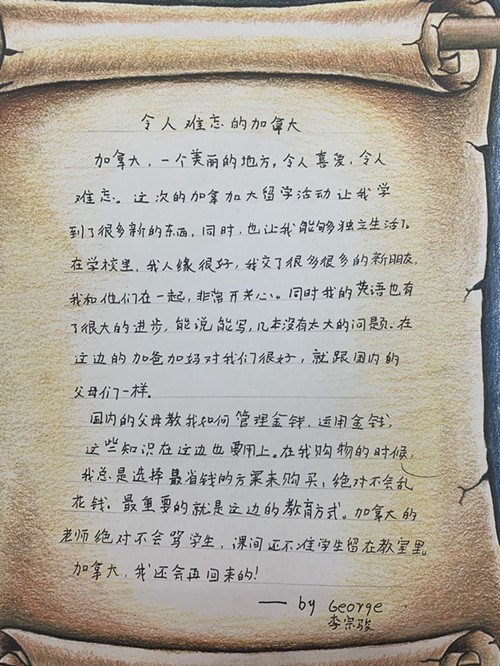 令人难忘的加拿大
加拿大，一个美丽的地方，令人喜爱，令人
难忘。这次的加拿加大留学活动让我学
到了很多新的东西，同时，也让我能够独立生活了。
在学校里，我人缘很好，我交了很多很多的新朋友，
我和他们在一起，非常开心。同时我的英语也有
了很大的进步，能说能写，几本没有太大的问题。在
这边的加爸加妈对我们很好，就跟国内的
父母们一样。
国内的父母教我如何管理金钱，运用金钱，
这些知识在这边也要用上。在我购物的时候，
我总是选择最省钱的方案来购买，绝对不会乱
花钱。最重要的就是这边的教育方式。加拿大的
老师绝对不会骂学生，课间还不准学生留在教室里。
加拿大，我还会再回来的！
—— by George
李宗骏